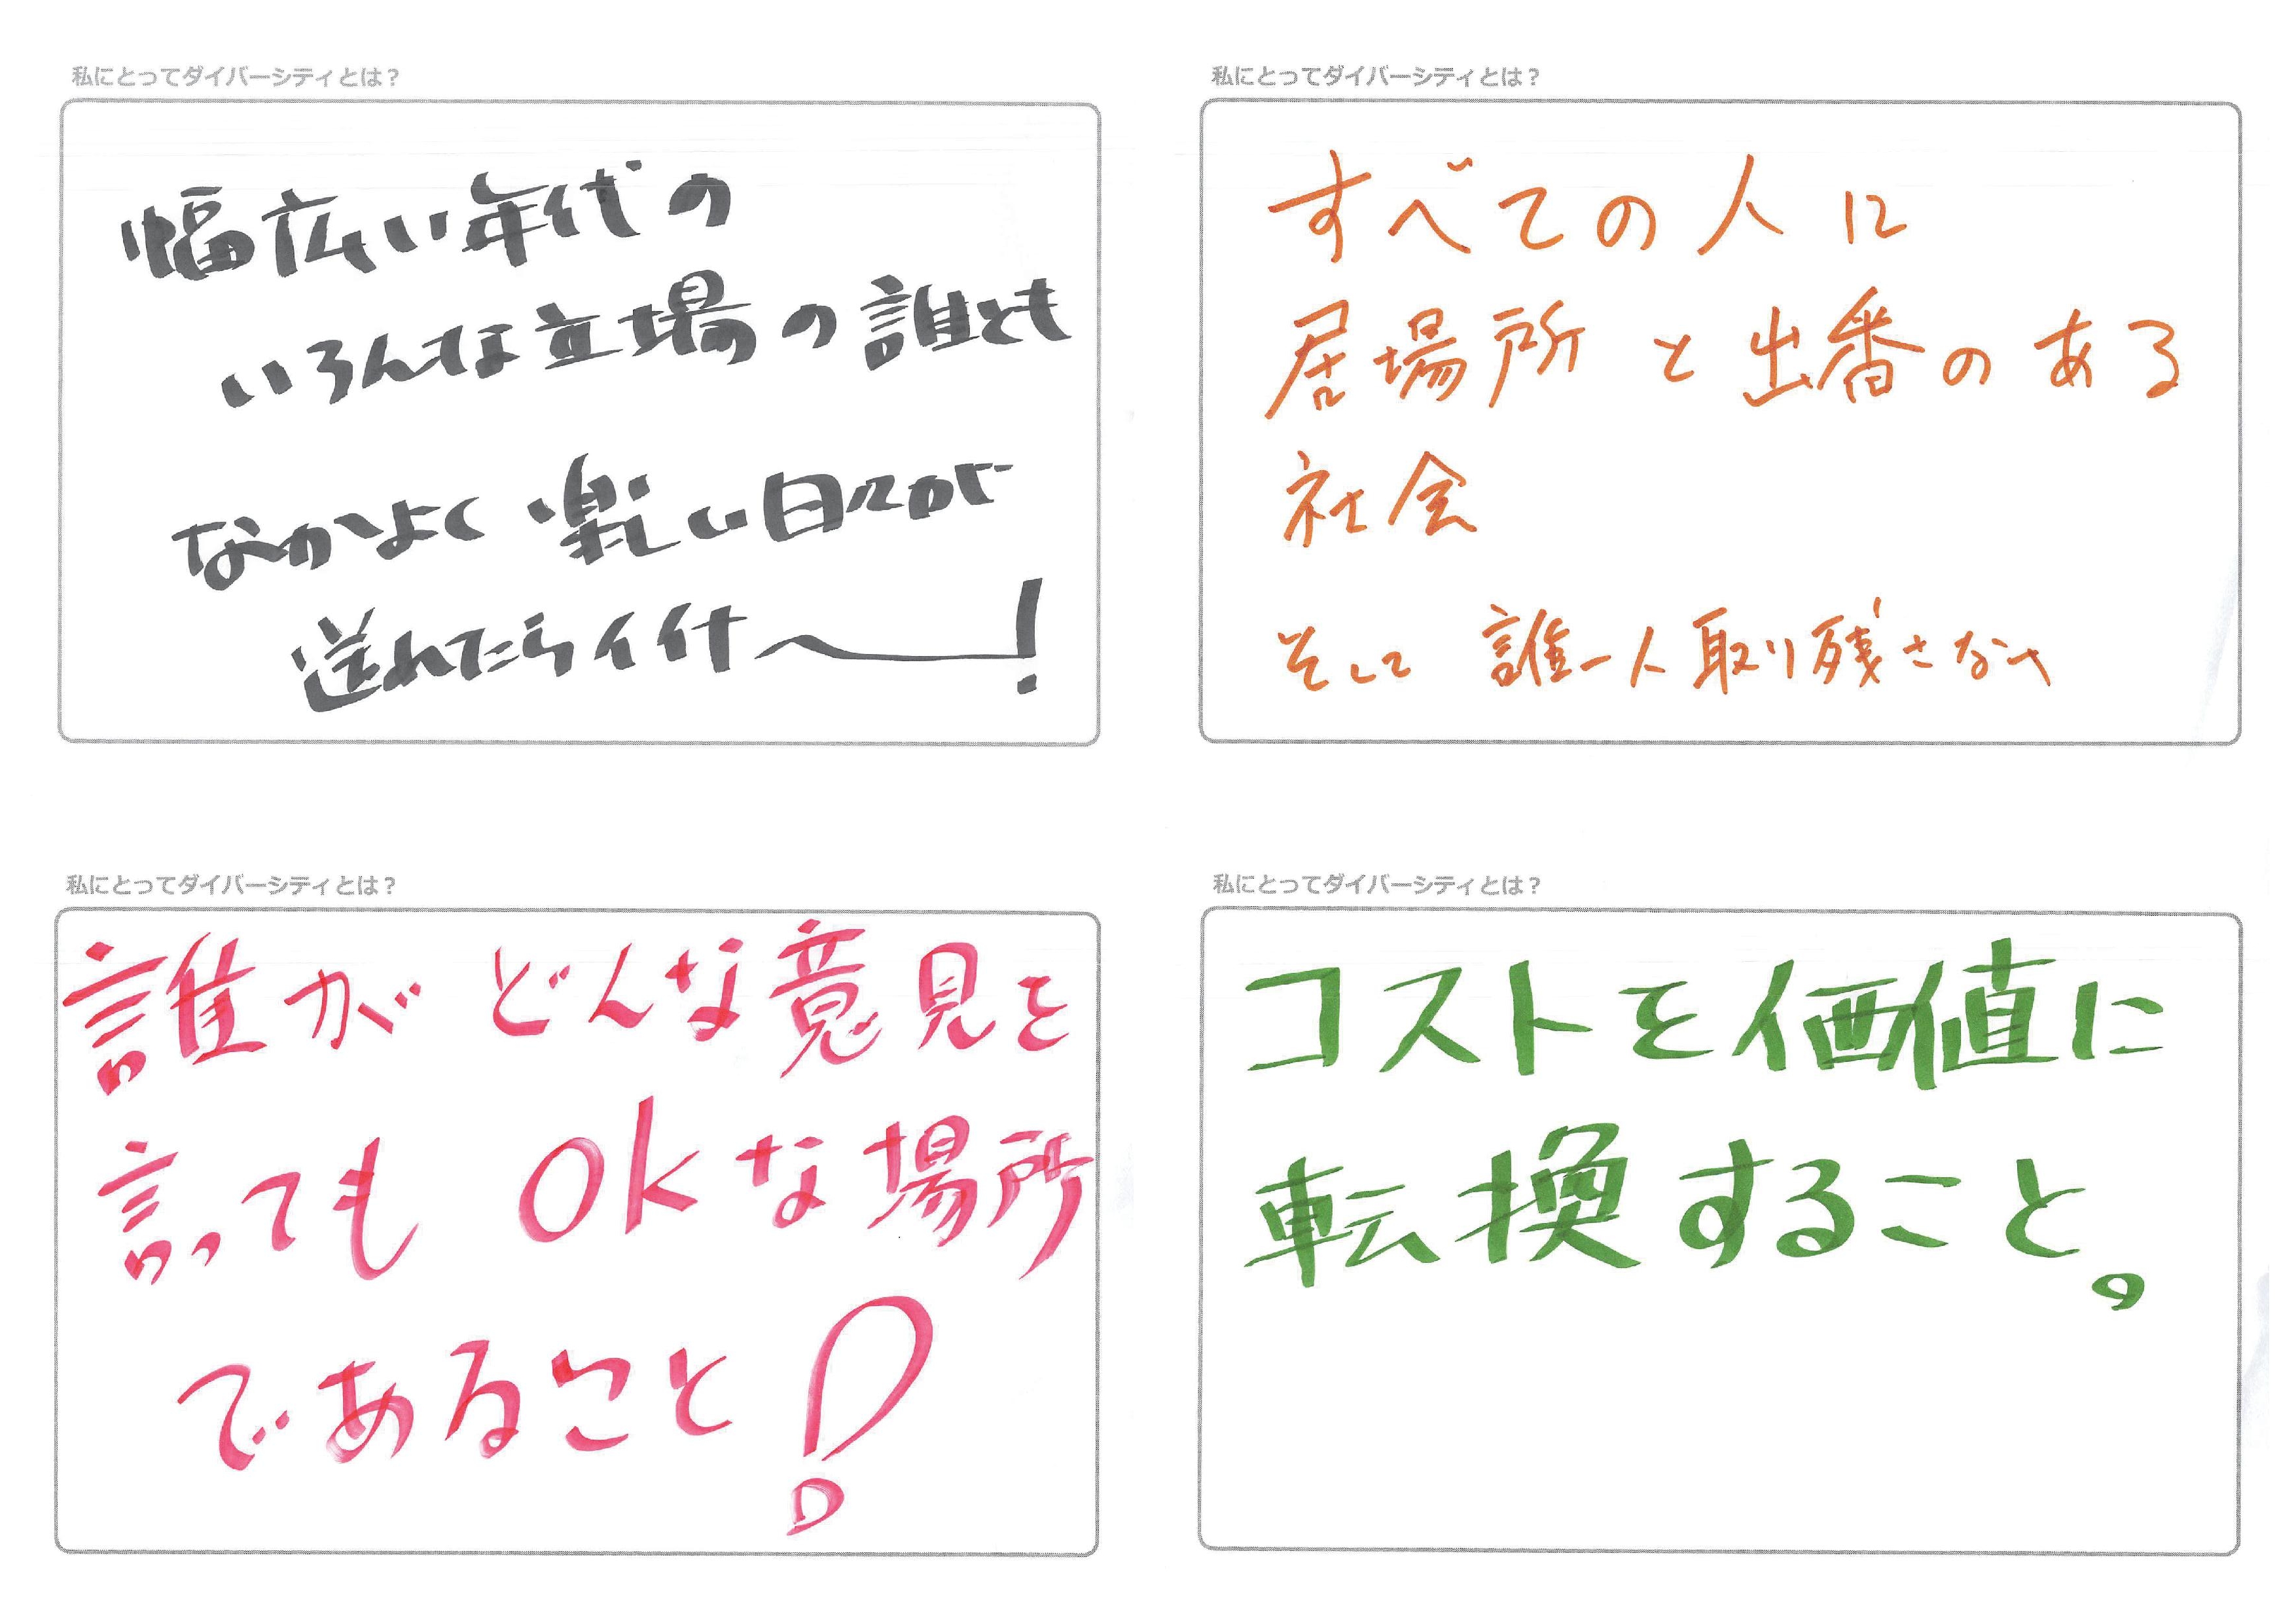 私にとってダイバーシティとは？
幅広い年代の
いろんな立場の誰とも
なかよく楽しい日々が
送れたらイイナ〜!
私にとってダイバーシティとは？
すべての人に
居場所と出番のある
社会
そして 誰一人取り残さない
私にとってダイバーシティとは？
誰が どんな意見を
言っても OKな場所
であること!
私にとってダイバーシティとは？
コストを価値に
転換すること。